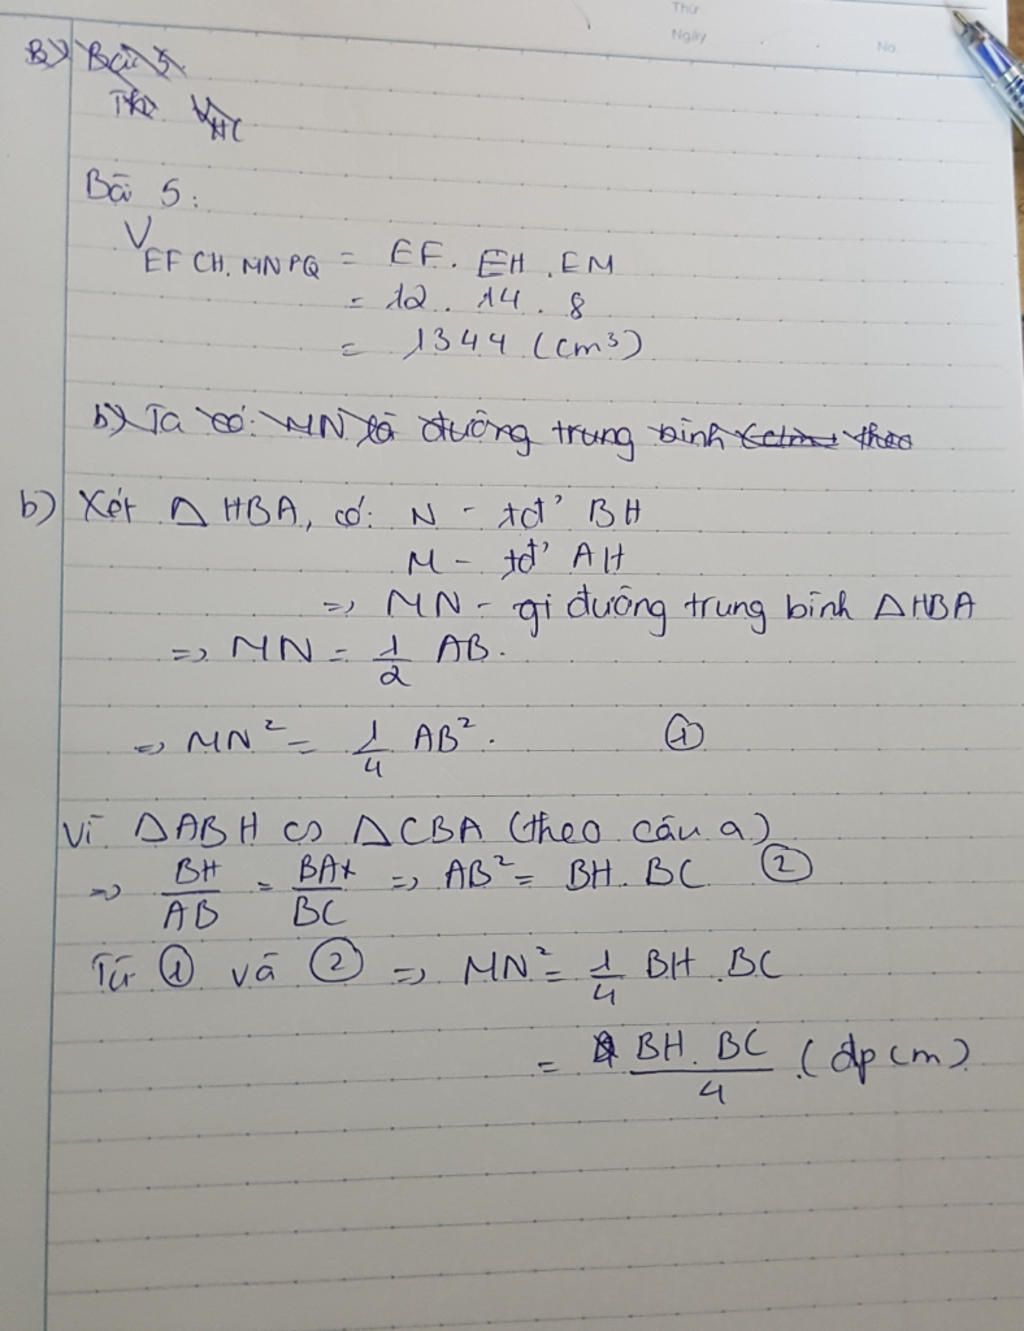 Thứ
Ngày
No.
B) Bài 5
V HC
Bài 5:
V EFCH.MNPQ = EF. EH. EM
= 12. 14. 8
= 1344 (cm³)
b) Ta có: MN là đường trung bình theo
b) Xét △HBA, có: N - tđ' BH
M - tđ' AH
=> MN - gi đường trung bình △HBA
=> MN = 1/2 AB.
=> MN² = 1/4 AB². ①
Vì △ABH ∽ △CBA (theo câu a)
=> BH/AB = BA/BC => AB² = BH. BC ②
Từ ① và ② => MN² = 1/4 BH. BC
= BH. BC/4 (đpcm)